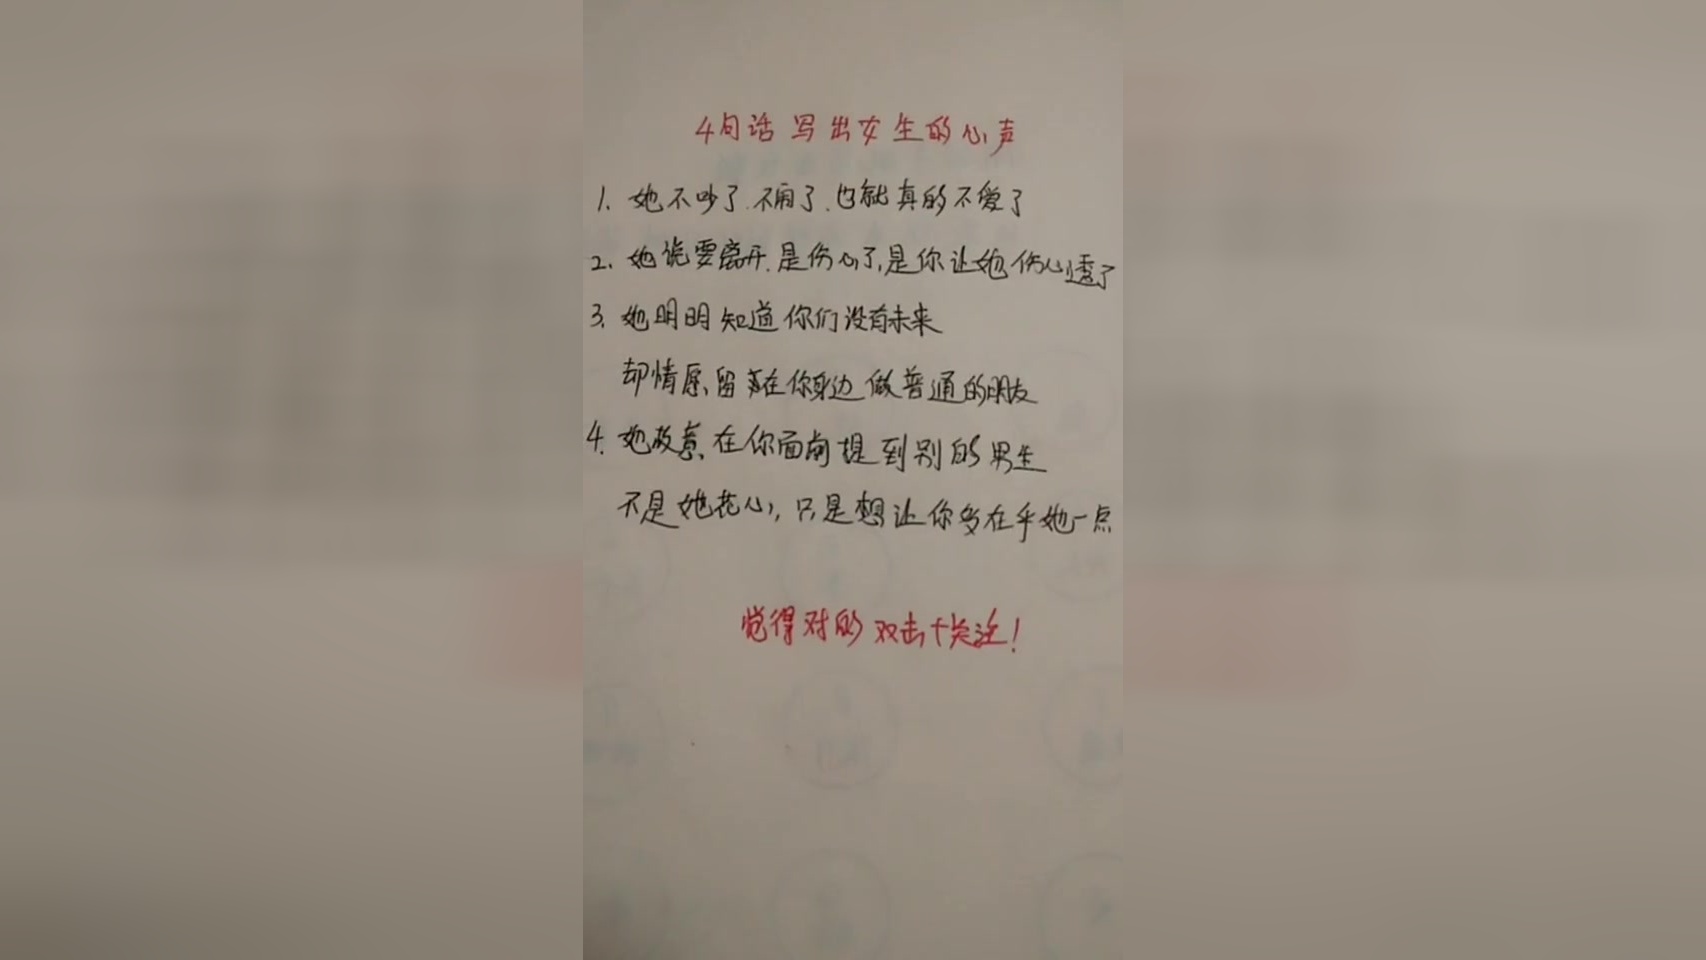 4句话写出女生的心声
1. 她不吵了.不闹了.也就真的不爱了
2. 她说要离开.是伤心了,是你让她伤心透了
3. 她明明知道你们没有未来
却情愿留在你身边做普通的朋友
4. 她故意在你面前提到别的男生
不是她花心,只是想让你多在乎她一点
觉得对的双击+关注!